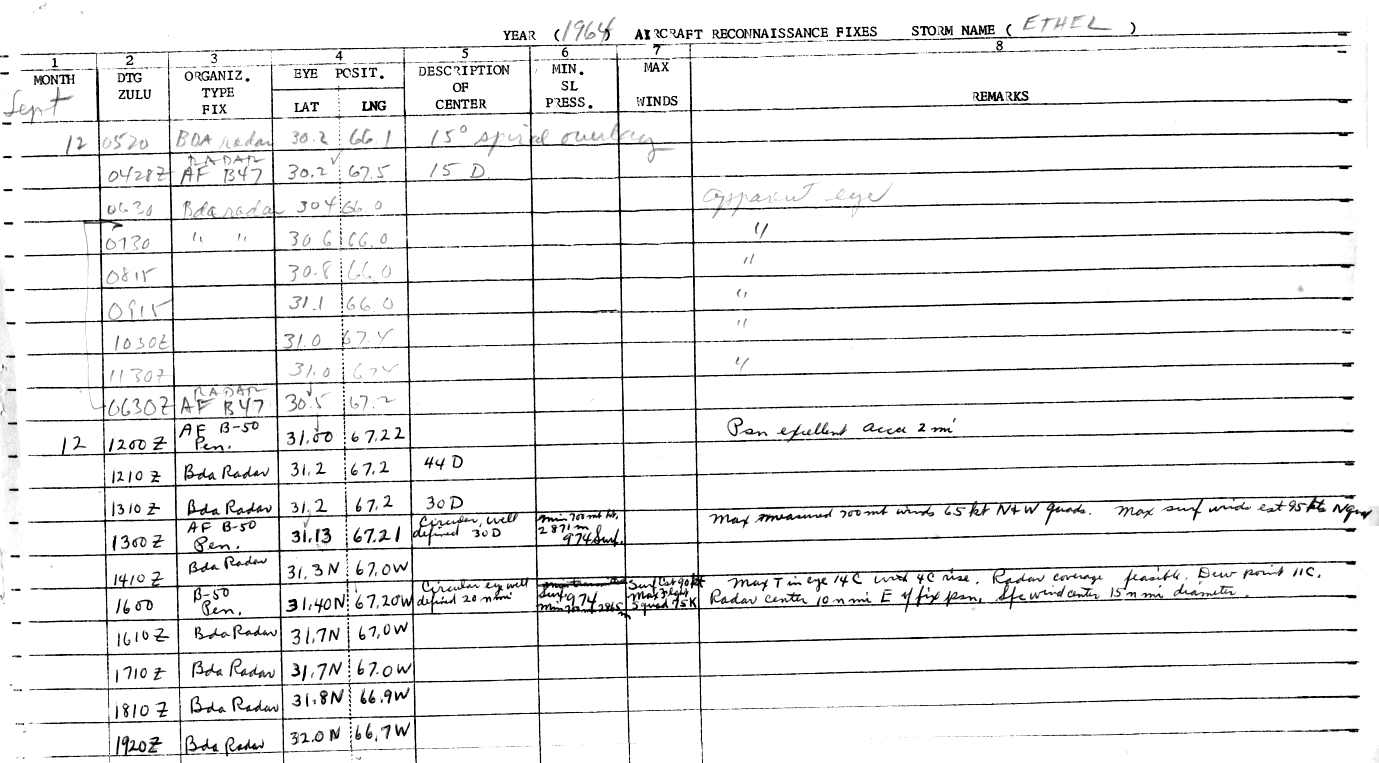 YEAR (1964) AIRCRAFT RECONNAISSANCE FIXES STORM NAME ( ETHEL )
1 2 3 4 5 6 7 8
MONTH DTG ZULU ORGANIZ. TYPE FIX EYE POSIT. LAT LNG DESCRIPTION OF CENTER MIN. SL PRESS. MAX WINDS REMARKS
Sept
12 0520 BDA radar 30.2 66.1 15° spiral overlay
0428Z RADAR AF B47 30.2 67.5 15 D
0630 Bda radar 304 66.0 apparent eye
0730 " " 30.6 66.0 "
0815 30.8 66.0 "
0915 31.1 66.0 "
1030Z 31.0 67.4 "
1130Z 31.0 67.4 "
0630Z RADAR AF B47 30.5 67.2
12 1200 Z AF B-50 Pen. 31.00 67.22 Psn excellent accu 2 mi
1210 Z Bda Radar 31.2 67.2 44 D
1310 Z Bda Radar 31.2 67.2 30 D
1300 Z AF B-50 Pen. 31.13 67.21 Circular, well defined 30 D min 700 mb ht. 2871 m 974 Surf. Max measured 700 mb winds 65 kt N+W quads. Max surf winds est 95 kts N quad
1410 Z Bda Radar 31.3 N 67.0W
1600 B-50 Pen. 31.40N 67.20W Circular eye well defined 20 n mi Surf 974 Min 700 mb 2865 m Surf Est 90 kt Max Flight S quad 75 K Max T in eye 14C with 4C rise. Radar coverage feasible. Dew point 11C. Radar center 10 n mi E of fix psn, Sfc wind center 15 n mi diameter.
1610 Z Bda Radar 31.7N 67.0W
1710 Z Bda Radar 31.7N 67.0W
1810 Z Bda Radar 31.8N 66.9W
1920 Z Bda Radar 32.0 N 66.7W